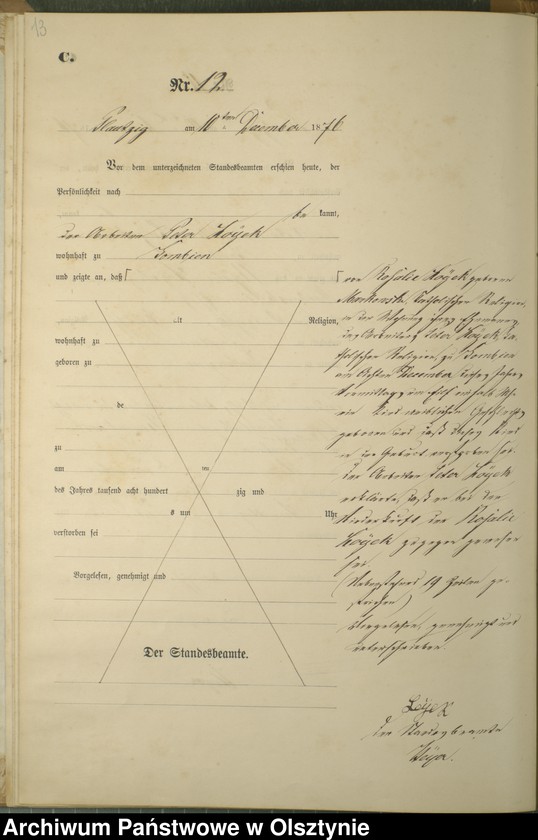 13
C.
Nr. 12.
Plautzig am 11ten December 1876
Vor dem unterzeichneten Standesbeamten erschien heute, der
Persönlichkeit nach
be kannt,
der Arbeiter Peter Loÿek
wohnhaft zu Dembien
und zeigte an, daß
alt Religion,
wohnhaft zu
geboren zu
de
zu
am ten
des Jahres tausend acht hundert zig und
s um Uhr
verstorben sei
Vorgelesen, genehmigt und
Der Standesbeamte.
von Rosalie Loÿek geborene
katholischer Religion,
in der Wohnung ihres Ehemannes
des Arbeiters Peter Loÿek, ka-
tholischer Religion, zu Dembien
am achten December dieses Jahres
Vormittags um elf einhalb Uhr
ein Kind weiblichen Geschlechts
geboren und daß dieses Kind
in der Geburt verstorben sei.
Der Arbeiter Peter Loÿek
erklärte, daß er bei der
Niederkunft der Rosalie
Loÿek zugegen gewesen
sei.
(Nebenstehend 19 Zeilen ge-
strichen)
Vorgelesen, genehmigt und
unterschrieben.
Loÿek
Der Standesbeamte
Archiwum Państwowe w Olsztynie